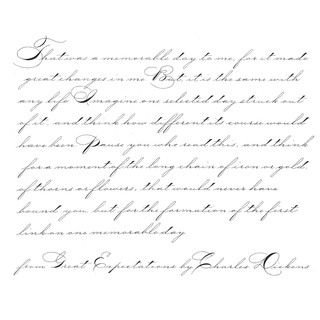 That was a memorable day to me, for it made
great changes in me But it is the same with
any life Imagine one selected day struck out
of it, and think how different it course would
have been Pause you who read this, and think
for a moment of the long chain of iron or gold,
of thorns or flowers, that would never have
bound you, but for the formation of the first
link on one memorable day
from Great Expectations by Charles Dickens